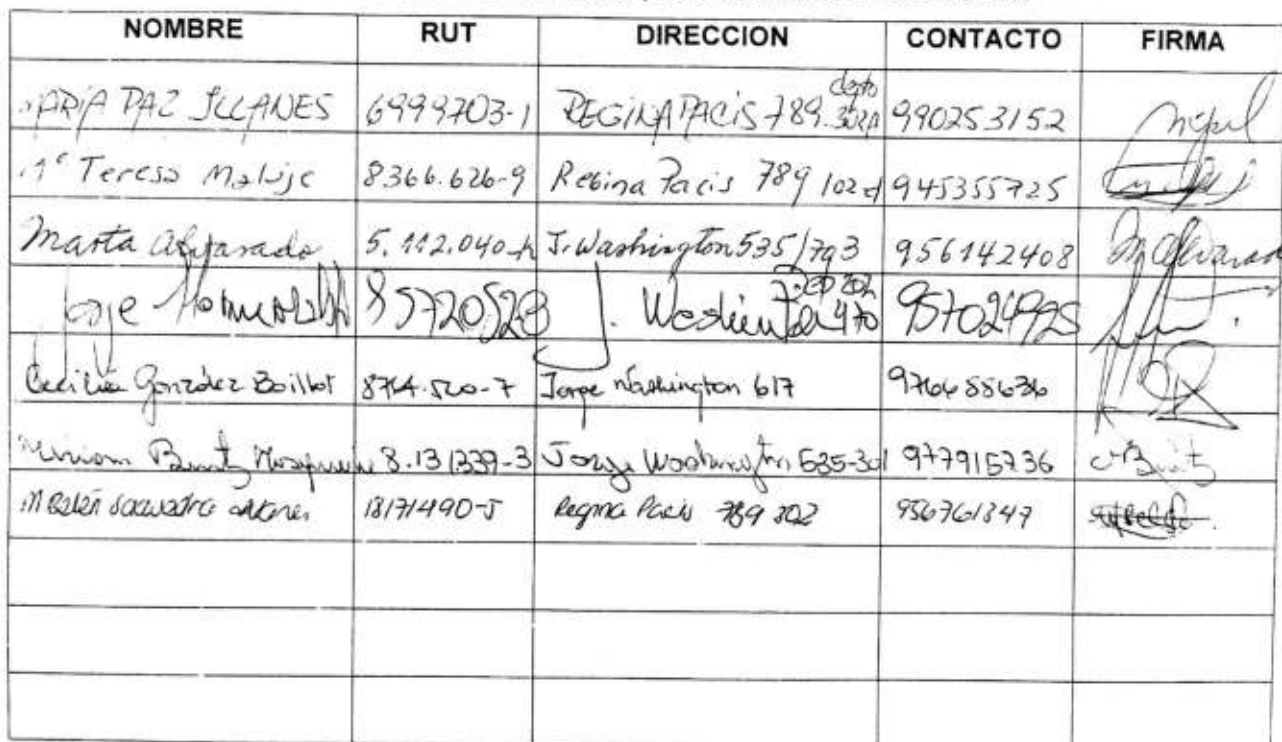 NOMBRE RUT DIRECCION CONTACTO FIRMA
MARIA PAZ ILLANES 6999703-1 REGINA PACIS 789. depto 302A 990253152
Mª Teresa Maluje 8366.626-9 Regina Pacis 789 102 d 945355725
Marta Alvarado 5.112.040-k J. Washington 535/703 956142408 M Alvarado
Jorge 85720528 J. 470 957024925
Cecilia González Boillot Jorge Washington 617
Miriam 8.131339-3 Jorge Washington 535-301 977915736
M Belén Saavedra 18171490-5 Regina Pacis 789 302 956761347